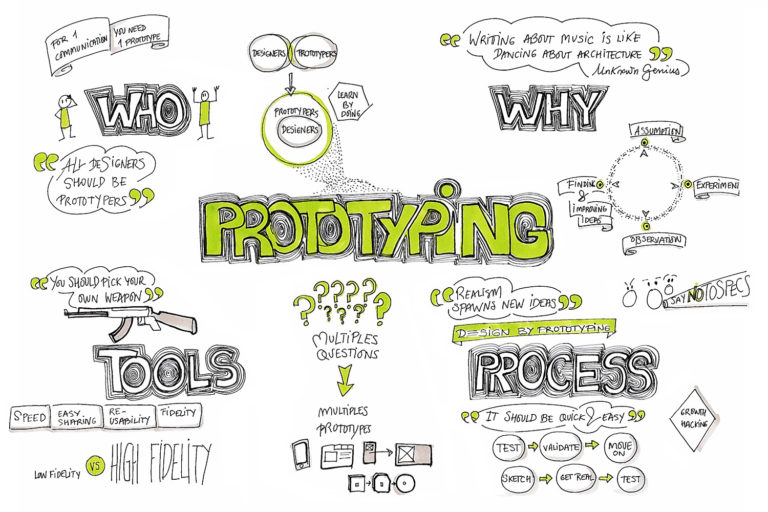 FOR 1
COMMUNICATION
YOU NEED
1 PROTOTYPE
WHO
ALL DESIGNERS
SHOULD BE
PROTOTYPERS
DESIGNERS
PROTOTYPERS
PROTOTYPERS
DESIGNERS
LEARN
BY
DOING
WRITING ABOUT MUSIC IS LIKE
DANCING ABOUT ARCHITECTURE
Unknown Genius
WHY
ASSUMOTION
EXPERIMENT
OBSERVATION
FINDING
&
IMPROVING
IDEAS
PROTOTYPING
YOU SHOULD PICK YOUR
OWN WEAPON
TOOLS
SPEED
EASY
SHARING
RE-
USABILITY
FIDELITY
LOW FIDELITY
VS
HIGH FIDELITY
? ? ? ? ?
? ? ? ? ?
MULTIPLES
QUESTIONS
MULTIPLES
PROTOTYPES
REALISM
SPAWNS NEW IDEAS
DESIGN BY PROTOTYPING
PROCESS
IT SHOULD BE QUICK & EASY
TEST
VALIDATE
MOVE
ON
SKETCH
GET REAL
TEST
SAY NO TO SPECS
GROWTH
HACKING